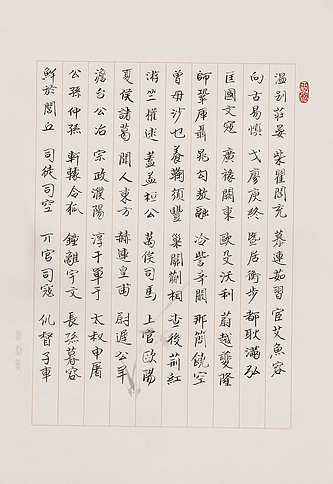 溫別莊晏柴瞿閻充慕連茹習宦艾魚容
向古易慎戈廖庾終暨居衡步都耿滿弘
匡國文寇廣祿闕東歐殳沃利蔚越夔隆
師鞏庫聶晁勾敖融冷訾辛闞那簡饒空
曾毋沙乜養鞠須豐巢關蒯相查後荊紅
游竺權逯蓋益桓公萬俟司馬上官歐陽
夏侯諸葛聞人東方赫連皇甫尉遲公羊
澹台公冶宗政濮陽淳于單于太叔申屠
公孫仲孫軒轅令狐鐘離宇文長孫慕容
鮮於閭丘司徒司空亓官司寇仉督子車